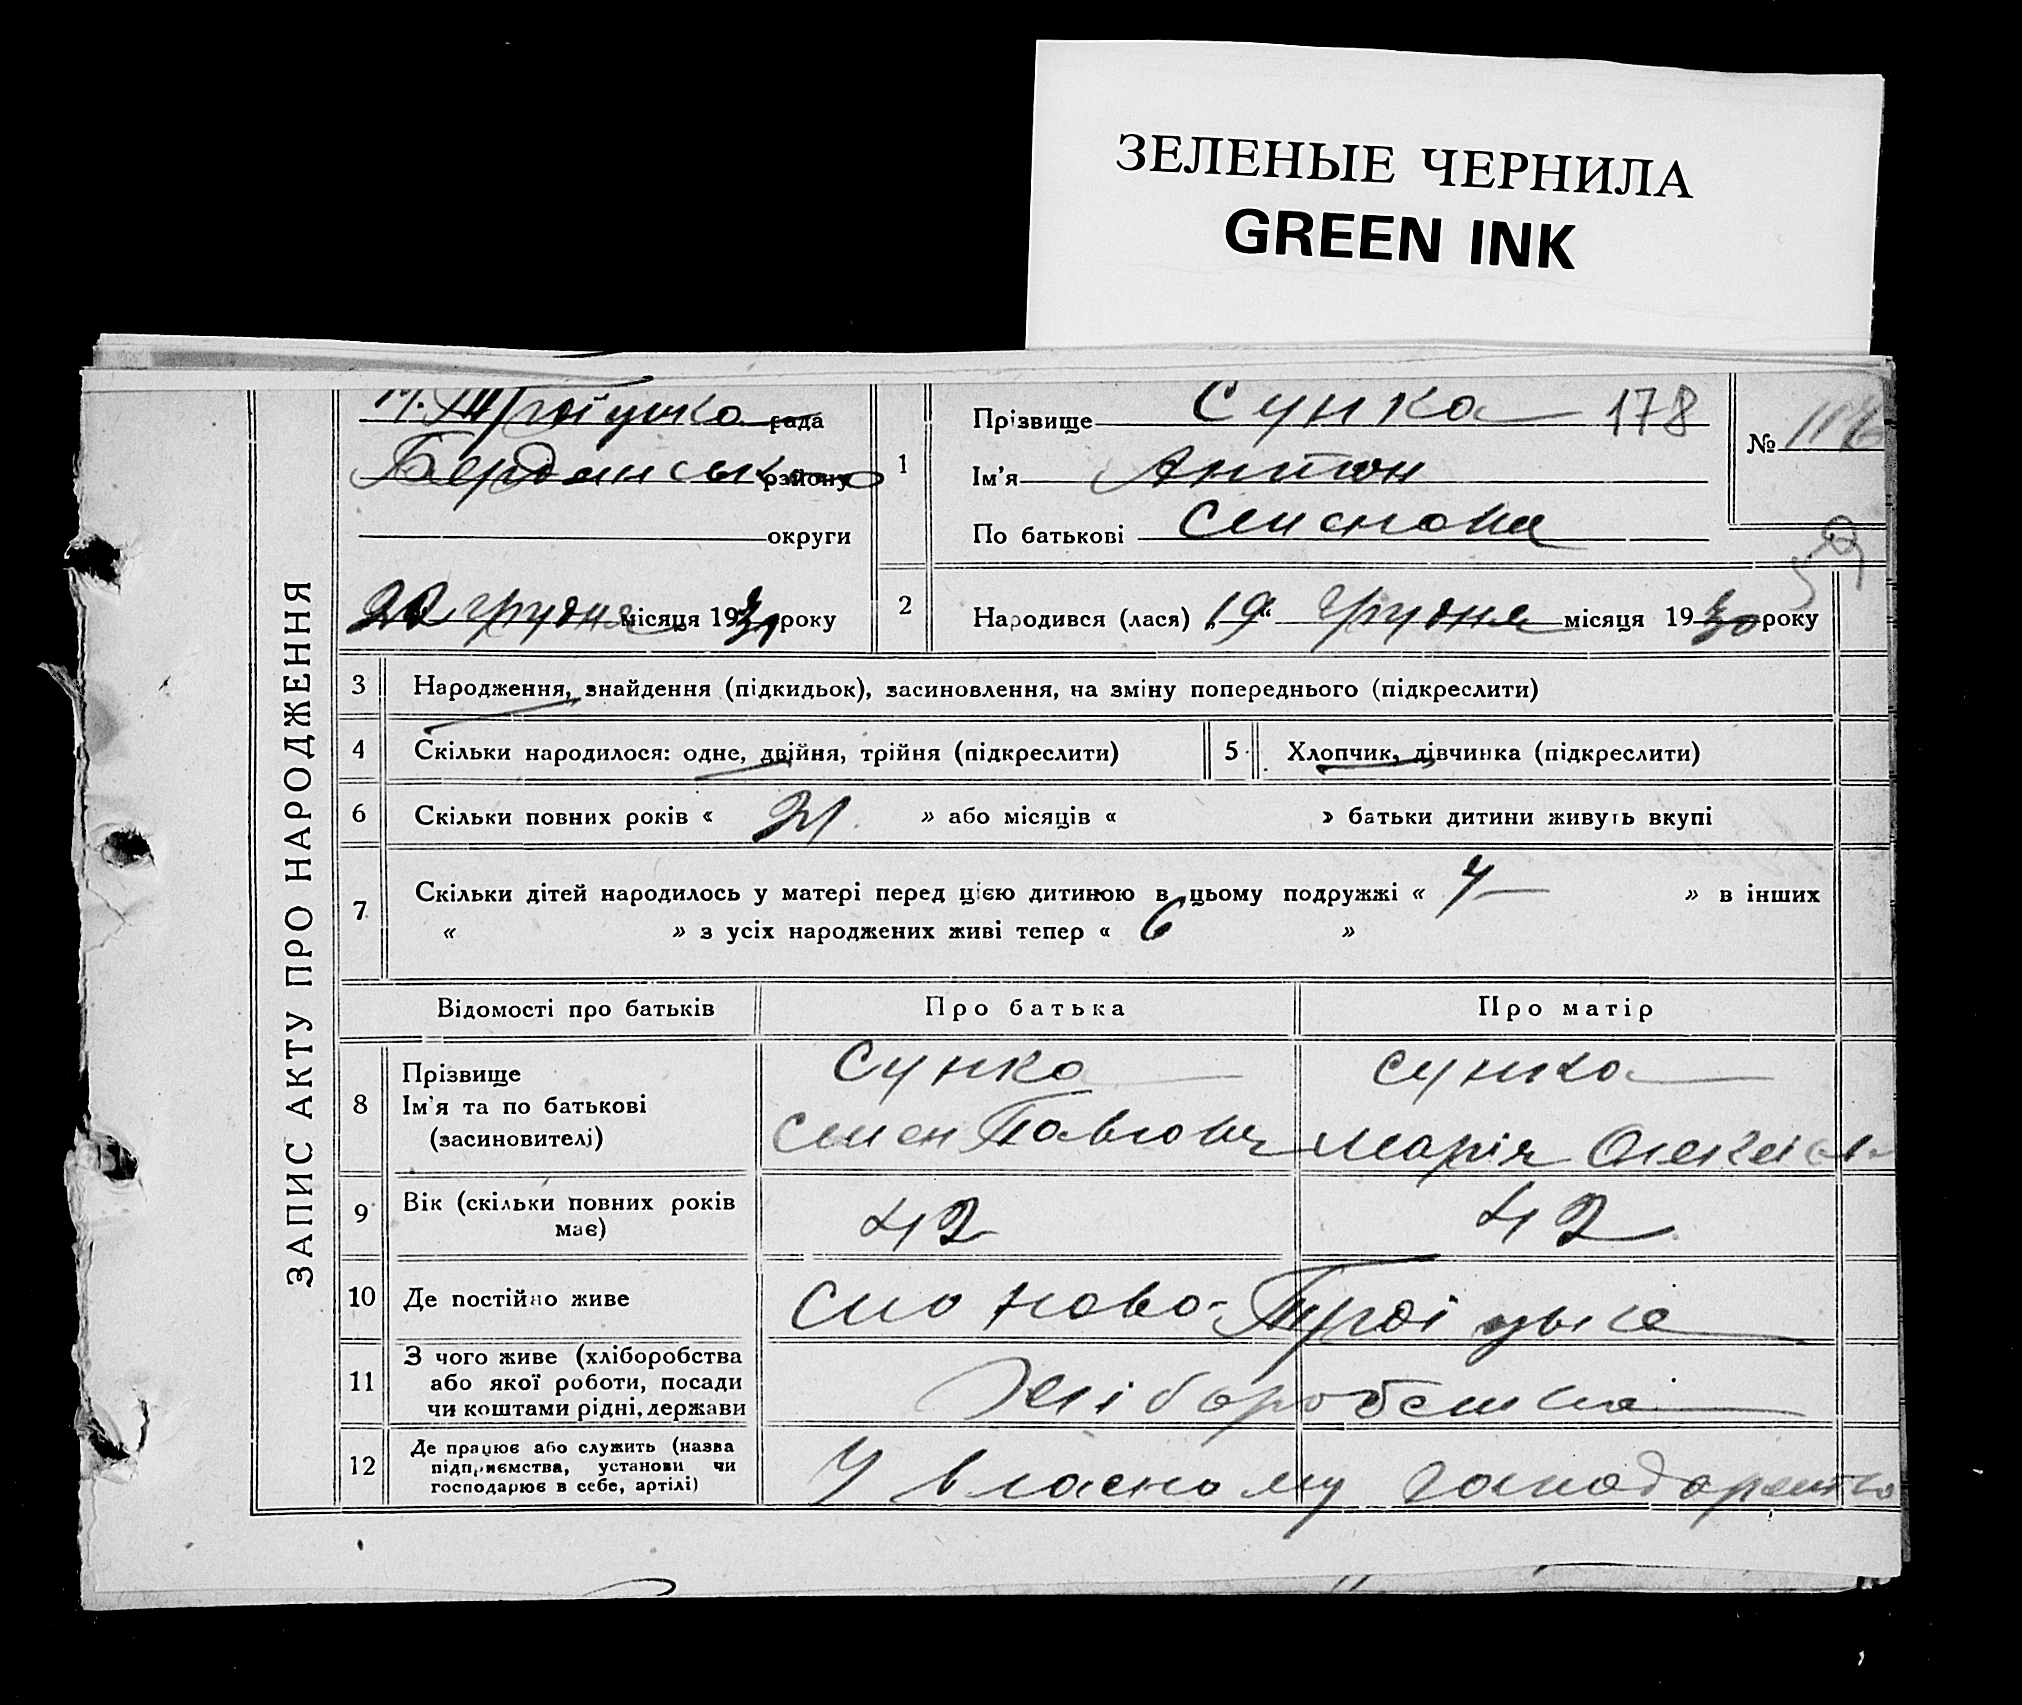 ЗЕЛЕНЫЕ ЧЕРНИЛА
GREEN INK
ЗАПИС АКТУ ПРО НАРОДЖЕННЯ
рада
Бердянського району
округи
грудня місяця 19 року
1
Прізвище Сунка 178
Ім'я Антон
По батькові
№
2
Народився (лася) „19“ грудня місяця 1930 року
3 Народження, знайдення (підкидьок), засиновлення, на зміну попереднього (підкреслити)
4 Скільки народилося: одне, двійня, трійня (підкреслити)
5 Хлопчик, дівчинка (підкреслити)
6 Скільки повних років « 21 » або місяців « » батьки дитини живуть вкупі
7 Скільки дітей народилось у матері перед цією дитиною в цьому подружжі « » в інших
« » з усіх народжених живі тепер « 6 »
Відомості про батьків Про батька Про матір
8 Прізвище Сунка Сунка
Ім'я та по батькові Семен Павлович Марія
(засновителі)
9 Вік (скільки повних років 42 42
має)
10 Де постійно живе Ново-Троїцька
11 З чого живе (хліборобства
або якої роботи, посади Хліборобства
чи коштами рідні, держави
12 Де працює або служить (назва
підприємства, установи чи У власному
господарює в себе, артілі)